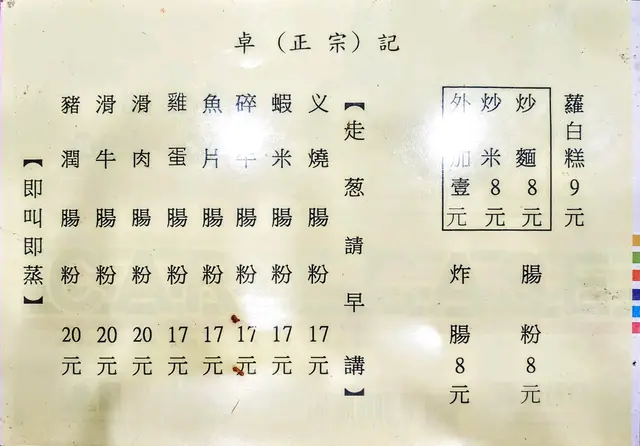 卓（正宗）記
蘿白糕9元
炒麵8元
炒米8元
外加壹元
腸粉8元
炸腸8元
【走葱請早講】
义燒腸粉17元
蝦米腸粉17元
碎牛腸粉17元
魚片腸粉17元
雞蛋腸粉17元
滑肉腸粉20元
滑牛腸粉20元
豬潤腸粉20元
【即叫即蒸】